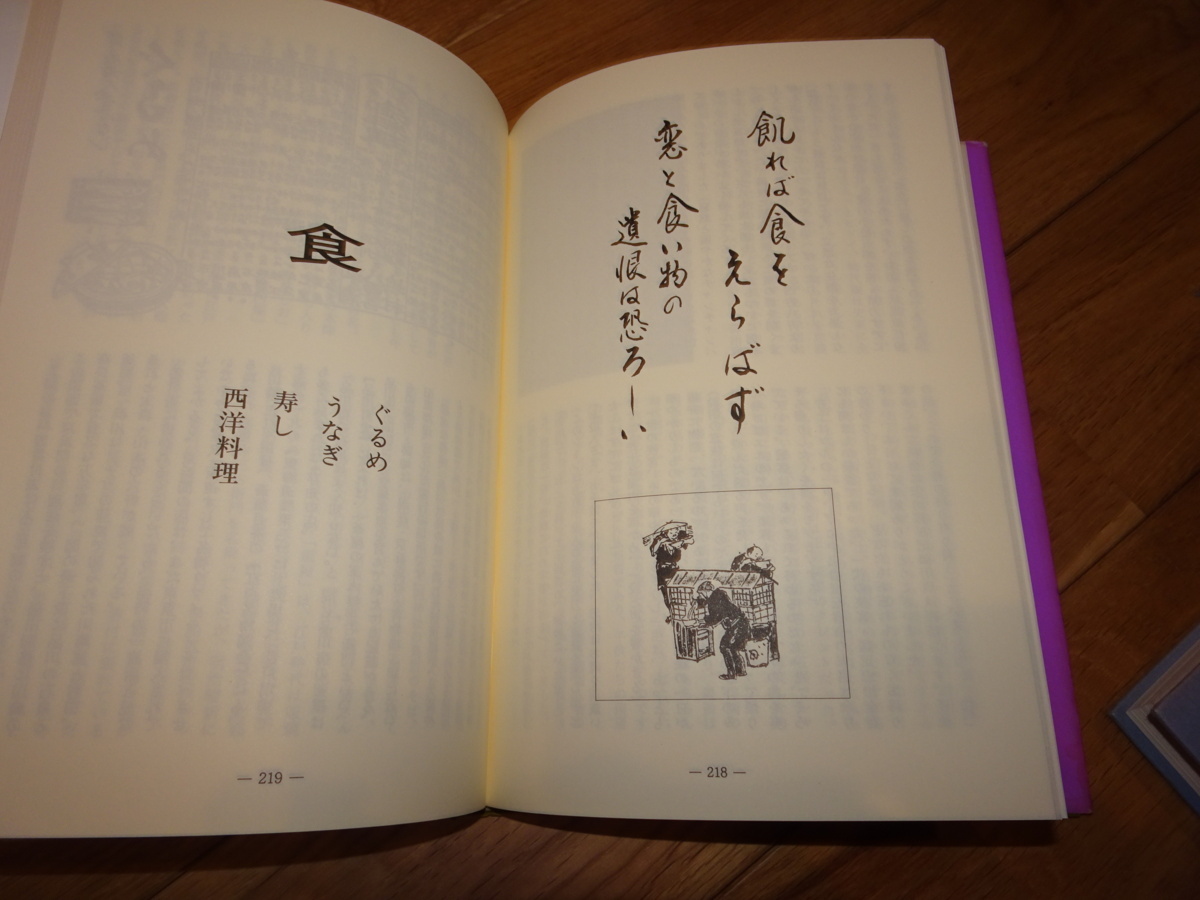 飢れば食を
えらばず
恋と食い物の
遺恨は恐ろしい
— 218 —
食
ぐるめ
うなぎ
寿し
西洋料理
— 219 —